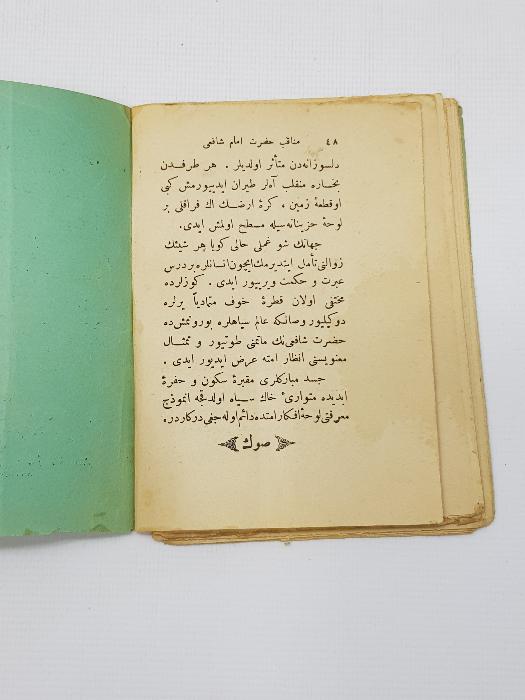 ٤٨ مناقب حضرت امام شافعی
دلسوزانه‌دن متأثر اولدیلر . هر طرفدن
بخاره منقلب آه‌لر طیران ایدییورمش کبی
اوقطعهٔ زمین ، کرهٔ ارضك اك فراقلی بر
لوحهٔ حزینانه‌سیله مسطح اولمش ایدی.
جهانك شو غملی حالی کویا هر شیئك
زوالنی تأمل ایتدیرمك ایچون انسانلره بر درس
عبرت و حکمت ویرییور ایدی . کوزلرده
مختفی اولان قطرهٔ خوف متمادیاً یرلره
دوکیلیور وصانکه عالم سیاهلره بورونمش‌ده
حضرت شافعی‌نك ماتمنی طوتییور و تمثال
معنویسنی انظار امته عرض ایدییور ایدی .
جسد مبارکلری مقبرهٔ سکون و حفرهٔ
ابدیده متواریٔ خاك سیاه اولدقجه انموذج
معرفتی لوحهٔ افکار امتده دائم اوله جغی درکاردر.
صوك